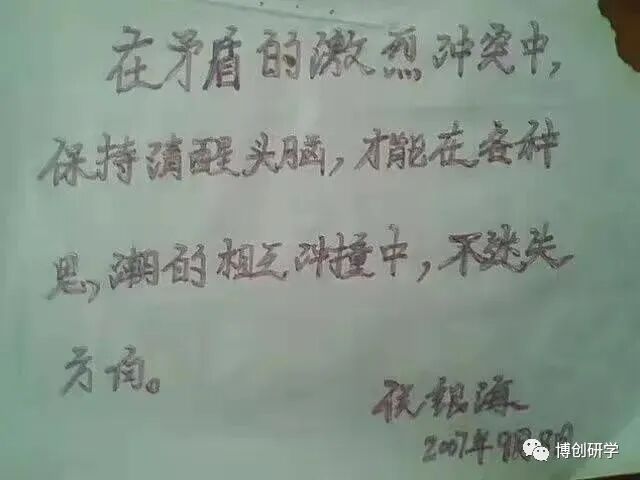 在矛盾的激烈冲突中，
保持清醒头脑，才能在各种
思潮的相互冲撞中，不迷失
方向。
侯银海
2007年9月8日
博创研学